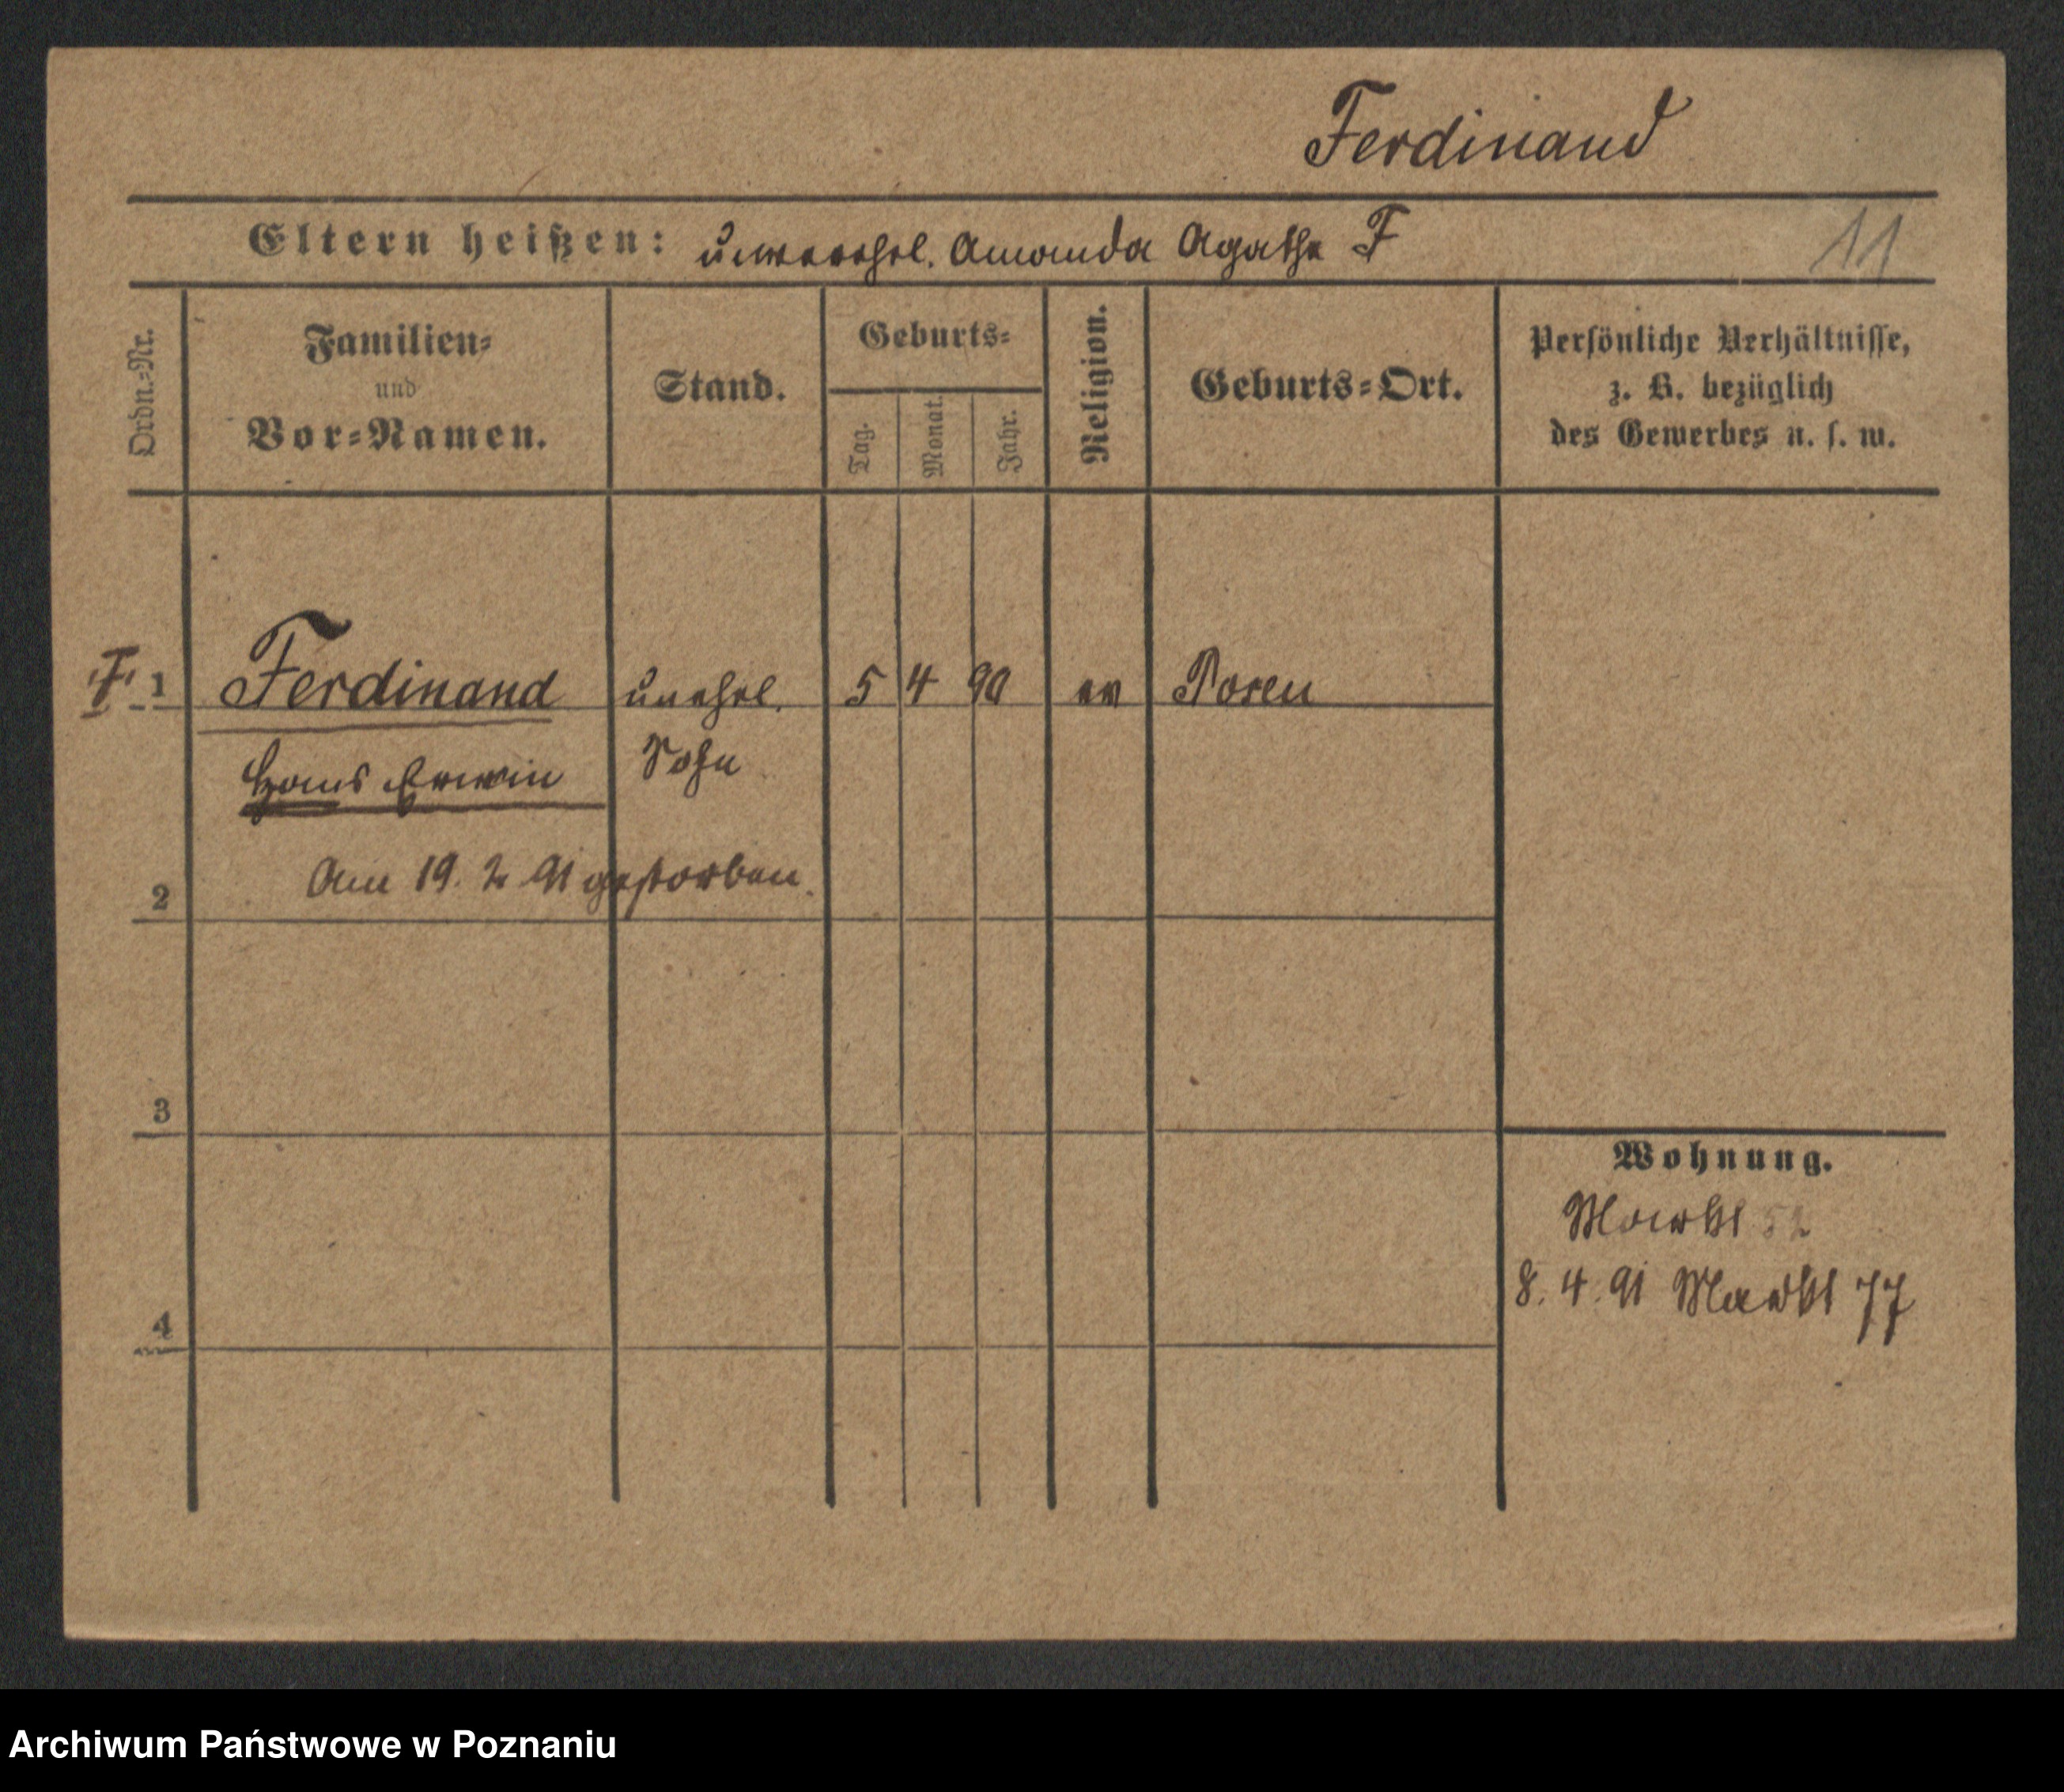 Ferdinand
Eltern heißen: unverehel. Amanda Agathe F
11
Ordn.-Nr.
Familien-
und
Vor-Namen.
Stand.
Geburts-
Tag.
Monat.
Jahr.
Religion.
Geburts-Ort.
Persönliche Verhältnisse,
z. B. bezüglich
des Gewerbes u. s. w.
1 Ferdinand unehel. 5 4 90 ev Posen
Hans Erwin Sohn
Am 19. 2 91 gestorben.
2
3
4
Wohnung.
Markt 52
8. 4. 91 Markt 77
Archiwum Państwowe w Poznaniu